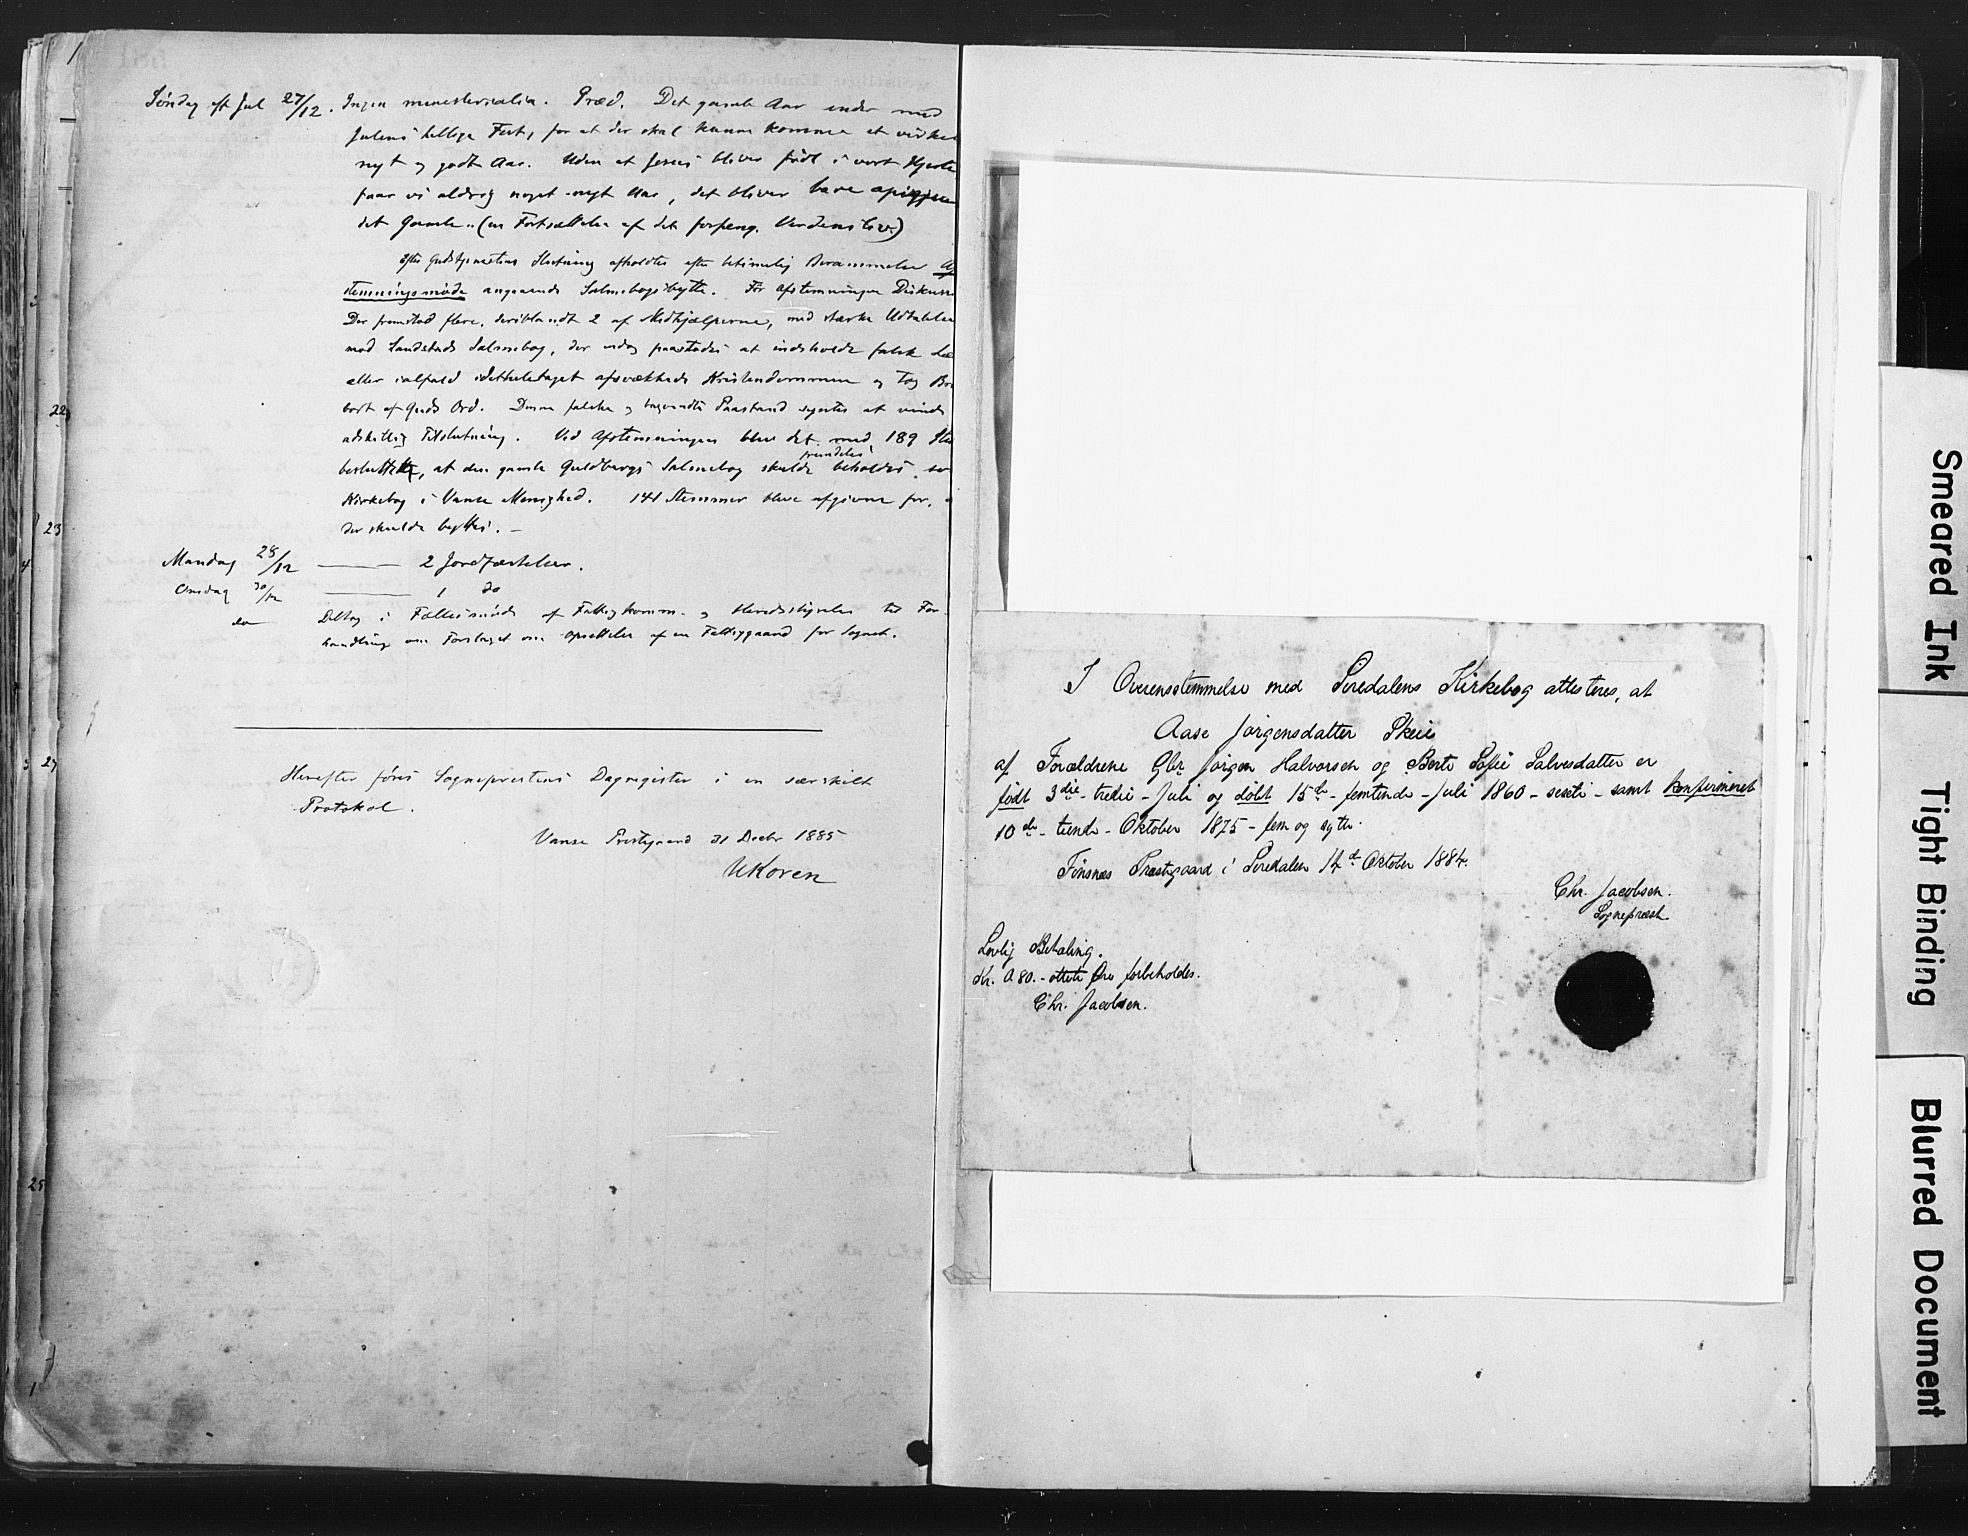 Søndag eft Jul 27/12. Ingen ministerialia. Præd. Det gamle Aar ender med
Julens hellige Fest, for at der skal kunne komme et virkel
nyt og godt Aar. Uden at Jesus bliver født i vort Hjerte
faar vi aldrig noget nyt Aar, det bliver bare
det gamle (en Fortsættelse af det forgeng. Verdensliv.)
Efter Gudstjenestens Slutning afholdtes efter betimelig Berammelse Af
stemningsmøde angaaende Salmebogsbytte. Før Afstemningen Diskuss
Der fremstod flere, deriblandt 2 af Medhjælperne, med stærke Udtalelse
mod Landstads Salmebog, der endog paastodes at indeholde falsk Læ
eller ialfald idetheletaget afsvækkede Kristendommen og tog Bro
bort af Guds Ord. Denne falske og bagvendte Paastand syntes at vinde
adskillig Tilslutning. Ved Afstemningen blev det med 189 Ste
besluttet, at den gamle Guldbergs Salmebog skulde fremdeles beholdes so
Kirkebog i Vanse Menighed. 141 Stemmer blev afgivne for, a
der skulde byttes. –
Mandag 28/12 —— 2 Jordfæstelser.
Onsdag 30/12 —— 1 do
do Deltog i Fællesmøde af Fattigkomm. og Herredsstyrelse til For-
handling om Forslaget om Oprettelse af en Fattiggaard for Sognet.
Herefter føres Sogneprestens Dagregister i en særskilt
Protokol.
Vanse Prestgaard 31 Decbr 1885
UKoren
I Overensstemmelse med Siredalens Kirkebog attesteres, at
Aase Jørgensdatter Skeie
af Forældrene Gbr Jørgen Halvorsen og Berte Sofie Salvesdatter er
født 3die - tredie - Juli og døbt 15de - femtende - Juli 1860 - seseti - samt konfirmeret
10de - tiende - Oktober 1875 - fem og sytti.
Finsnæs Præstegaard i Siredalen 14de Oktober 1884.
Chr. Jacobsen.
Sognepræst
Lovlig Betaling.
Kr. 0.80. - otteti Øre forbeholdes.
Chr. Jacobsen.
22
23
4
5 24
25
1
Smeared Ink
Tight Binding
Blurred Document